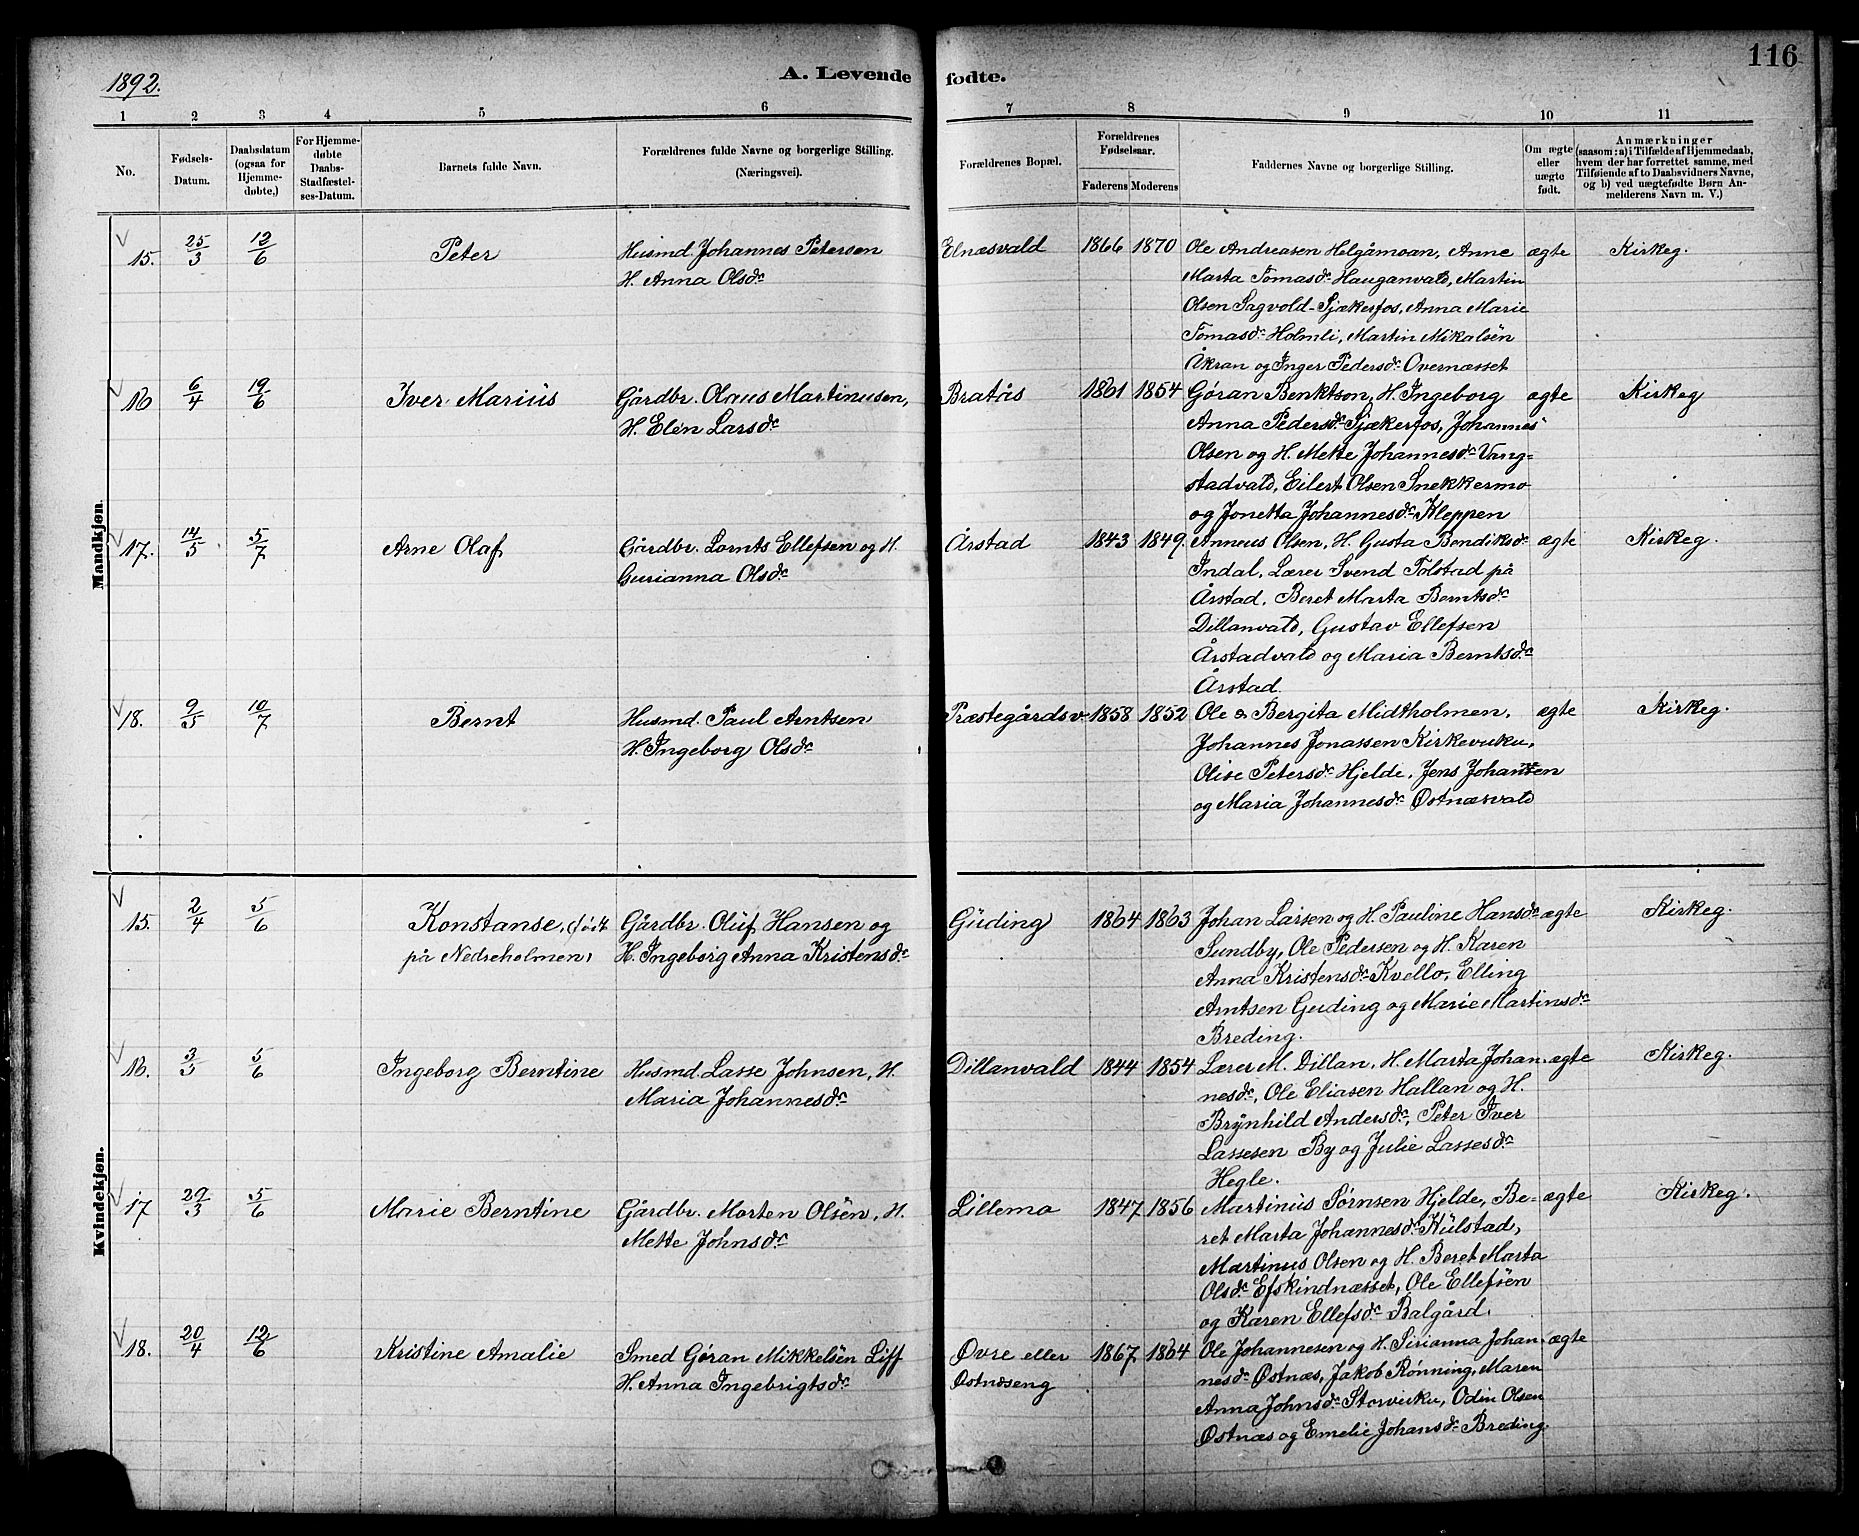 116
1892.
A. Levende fødte.
1 2 3 4 5 6 7 8 9 10 11
No.
Fødsels-Datum.
Daabsdatum (ogsaa for Hjemme-døbte.)
For Hjemme-døbte Daabs-Stadfæstel-ses-Datum.
Barnets fulde Navn.
Forældrenes fulde Navne og borgerlige Stilling. (Næringsvei).
Forældrenes Bopæl.
Forældrenes Fødselsaar.
Faderens Moderens
Faddernes Navne og borgerlige Stilling.
Om ægte eller uægte født.
Anmærkninger (saasom: a) i Tilfælde af Hjemmedaab, hvem der har forrettet samme, med Tilføiende af to Daabsvidners Navne, og b) ved uægtefødte Børn An-melderens Navn m. V.)
Mandkjøn.
15. 25/3 12/6 Peter Husmd. Johannes Petersen Elnæsvald 1866 1870 Ole Andreasen Helgåmoan, Anne ægte Kirkeg.
H. Anna Olsdr Marta Tomasdr Hauganvald, Martin
Olsen Sagvold-Sjækerfos, Anna Marie
Tomasdr Holmli, Martin Mikalsen
Åkran og Inger Pedersdr Overnæsset
16 6/4 19/6 Iver Marius Gårdbr. Olaus Martinusen, Bratås 1861 1854 Gøran Benktson, H. Ingeborg ægte Kirkeg
H. Elen Larsdr Anna Pedersdr Sjækerfos, Johannes
Olsen og H. Mette Johannesdr Vang-
stadvald, Eilert Olsen Snekkermo
og Jonetta Johannesdr Kleppen
17. 14/5 5/7 Arne Olaf Gårdbr. Lornts Ellefsen og H. Årstad 1843 1849. Anneus Olsen, H. Gusta Bendiksdr ægte Kirkeg.
Gurianna Olsdr Indal, Lærer Svend Tolstad på
Årstad, Beret Marta Berntsdr
Dillanvald, Gustav Ellefsen
Årstadvald og Maria Berntsdr
Årstad.
18. 9/5 10/7 Bernt Husmd. Paul Arntsen Præstegårdsv. 1858 1852 Ole & Bergita Midtholmen, ægte Kirkeg.
H. Ingeborg Olsdr Johannes Jonassen Kirkevuku,
Olise Petersdr Hjelde, Jens Johansen
og Maria Johannesdr Østnæsvald
Kvindekjøn.
15. 2/4 5/6 Konstanse, (født Gårdbr. Oluf Hansen og Guding 1864 1863 Johan Larsen og H. Pauline Hansdr ægte Kirkeg.
på Nedreholmen) H. Ingeborg Anna Kristensdr Sundby, Ole Pedersen og H. Karen
Anna Kristensdr Kvello, Elling
Arntsen Guding og Marie Martinsdr
Breding.
16. 3/5 5/6 Ingeborg Berntine Husmd. Lasse Johnsen, H. Dillanvald 1844 1854 Lærer M. Dillan, H. Marta Johan- ægte Kirkeg.
Maria Johannesdr nesdr, Ole Eliasen Hallan og H.
Brynhild Andersdr, Peter Iver
Lassesen By og Julie Lassesdr
Hegle.
17 29/3 5/6 Marie Berntine Gårdbr. Morten Olsen, H. Lillemo 1847 1856 Martinus Sørnsen Hjelde, Be- ægte Kirkeg.
Mette Johnsdr ret Marta Johannesdr Kulstad,
Martinus Olsen og H. Beret Marta
Olsdr Efskindnæsset, Ole Ellefsen
og Karen Ellefsdr Balgård.
18. 20/4 12/6 Kristine Amalie Smed Gøran Mikkelsen Liff Øvre eller 1867 1864 Ole Johannesen og H. Sirianna Johan- ægte
H. Anna Ingebrigtsdr Østnæseng nesdr Østnæs, Jakob Rønning, Maren
Anna Johnsdr Storvuku, Odin Olsen
Østnæs og Emelie Johansdr Breding.